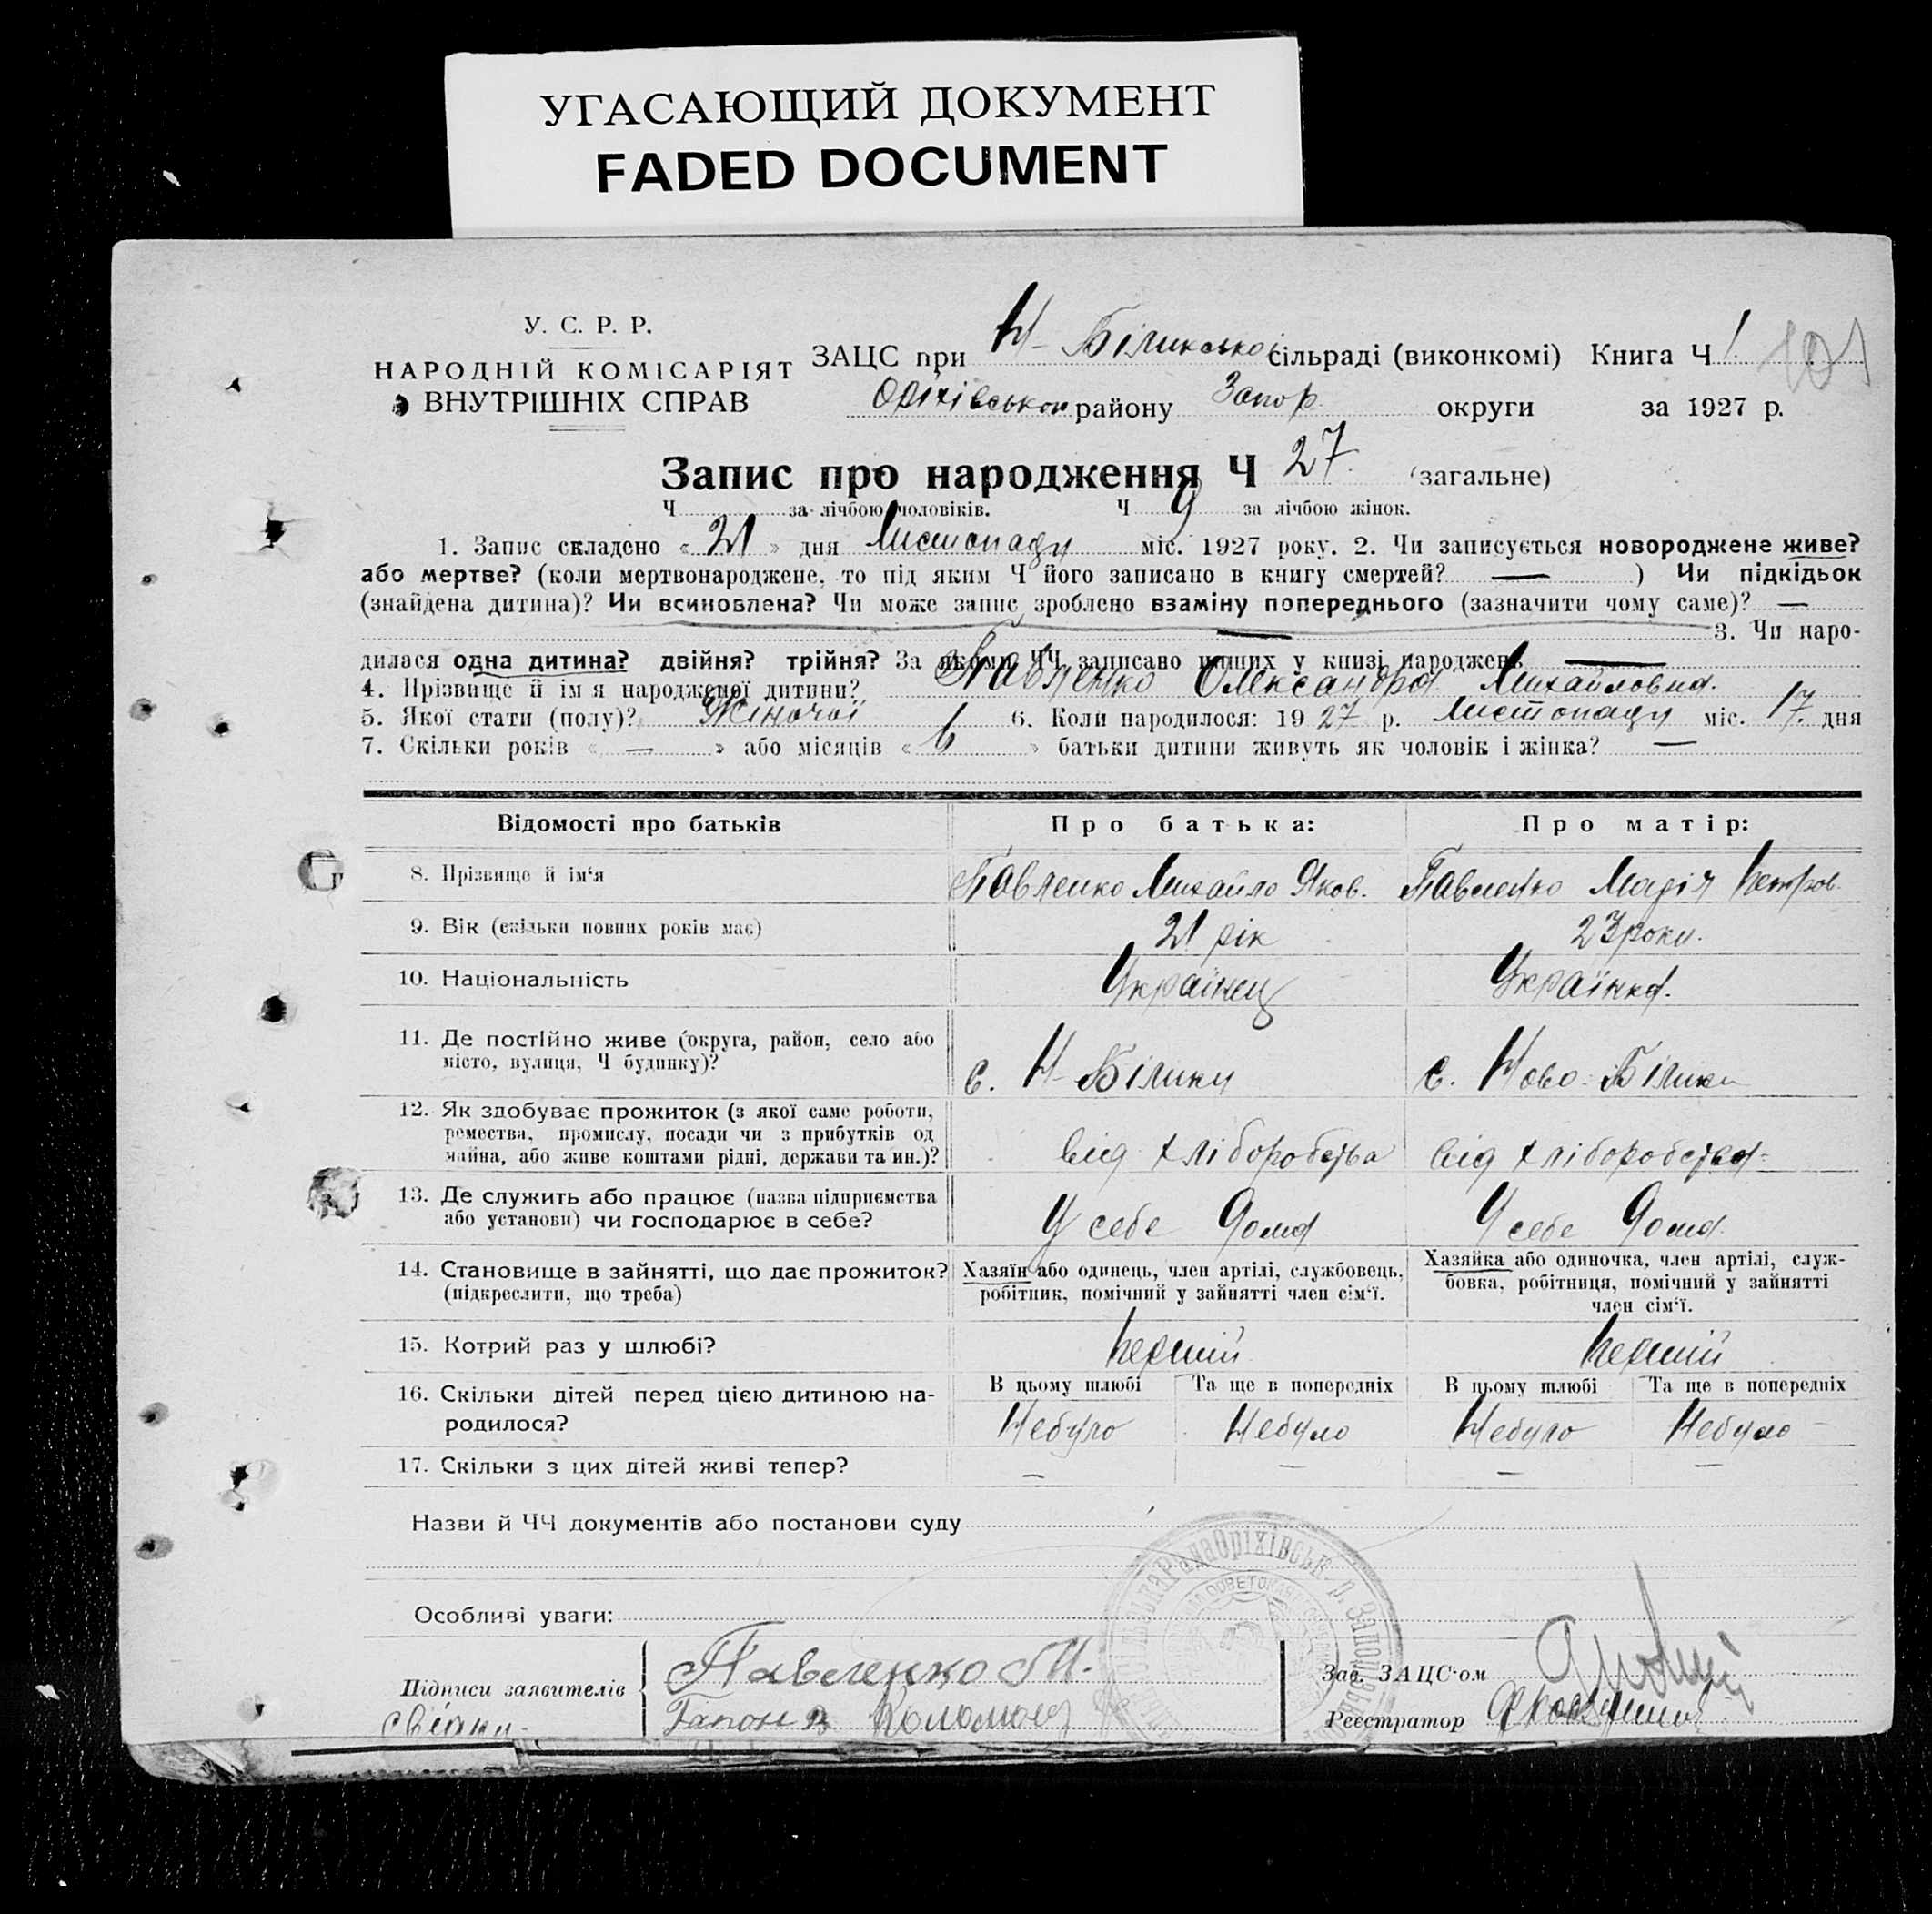 УГАСАЮЩИЙ ДОКУМЕНТ
FADED DOCUMENT
У. С. Р. Р.
НАРОДНІЙ КОМІСАРІЯТ
ВНУТРІШНІХ СПРАВ
ЗАЦС при Н-Біликської сільраді (виконкомі) Книга Ч 1 101
Оріхівського району Запор. округи за 1927 р.
Запис про народження Ч 27 (загальне)
Ч за лічбою чоловіків. Ч 9 за лічбою жінок.
1. Запис складено « 21 » дня Листопаду міс. 1927 року. 2. Чи записується новороджене живе?
або мертве? (коли мертвонароджене, то під яким Ч його записано в книгу смертей? — ) Чи підкідьок
(знайдена дитина)? Чи всиновлена? Чи може запис зроблено взаміну попереднього (зазначити чому саме)? —
— 3. Чи наро-
дилася одна дитина? двійня? трійня? За якими ЧЧ записано инших у книзі народжень —
4. Прізвище й ім'я народженої дитини? Павленко Олександра Михайловна.
5. Якої стати (полу)? Жіночої 6. Коли народилося: 1927 р. Листопаду міс. 17. дня
7. Скільки років « — » або місяців « 6 » батьки дитини живуть як чоловік і жінка? —
Відомості про батьків Про батька: Про матір:
8. Прізвище й ім'я Павленко Михайло Яков. Павленко Марія Петров.
9. Вік (скільки повних років має) 21 рік 23 роки.
10. Національність Українец Українка.
11. Де постійно живе (округа, район, село або
місто, вулиця, Ч будинку)? с. Н-Білики с. Ново-Білики
12. Як здобуває прожиток (з якої саме роботи,
ремества, промислу, посади чи з прибутків од
майна, або живе коштами рідні, держави та ин.)? від хліборобства від хліборобства
13. Де служить або працює (назва підприємства
або установи) чи господарює в себе? У себе дома У себе дома
14. Становище в зайнятті, що дає прожиток?
(підкреслити, що треба)
Хазяїн або одинець, член артілі, службовець,
робітник, помічний у зайнятті член сім'ї.
Хазяйка або одиночка, член артілі, служ-
бовка, робітниця, помічний у зайнятті
член сім'ї.
15. Котрий раз у шлюбі? перший перший
16. Скільки дітей перед цією дитиною на-
родилося?
В цьому шлюбі Та ще в попередніх В цьому шлюбі Та ще в попередніх
Небуло Небуло Небуло Небуло
17. Скільки з цих дітей живі тепер? — — — —
Назви й ЧЧ документів або постанови суду
Особливі уваги:
Підписи заявителів Павленко М.
свідки Гапон Коломоєц
Зав. ЗАЦС'ом
Реєстратор